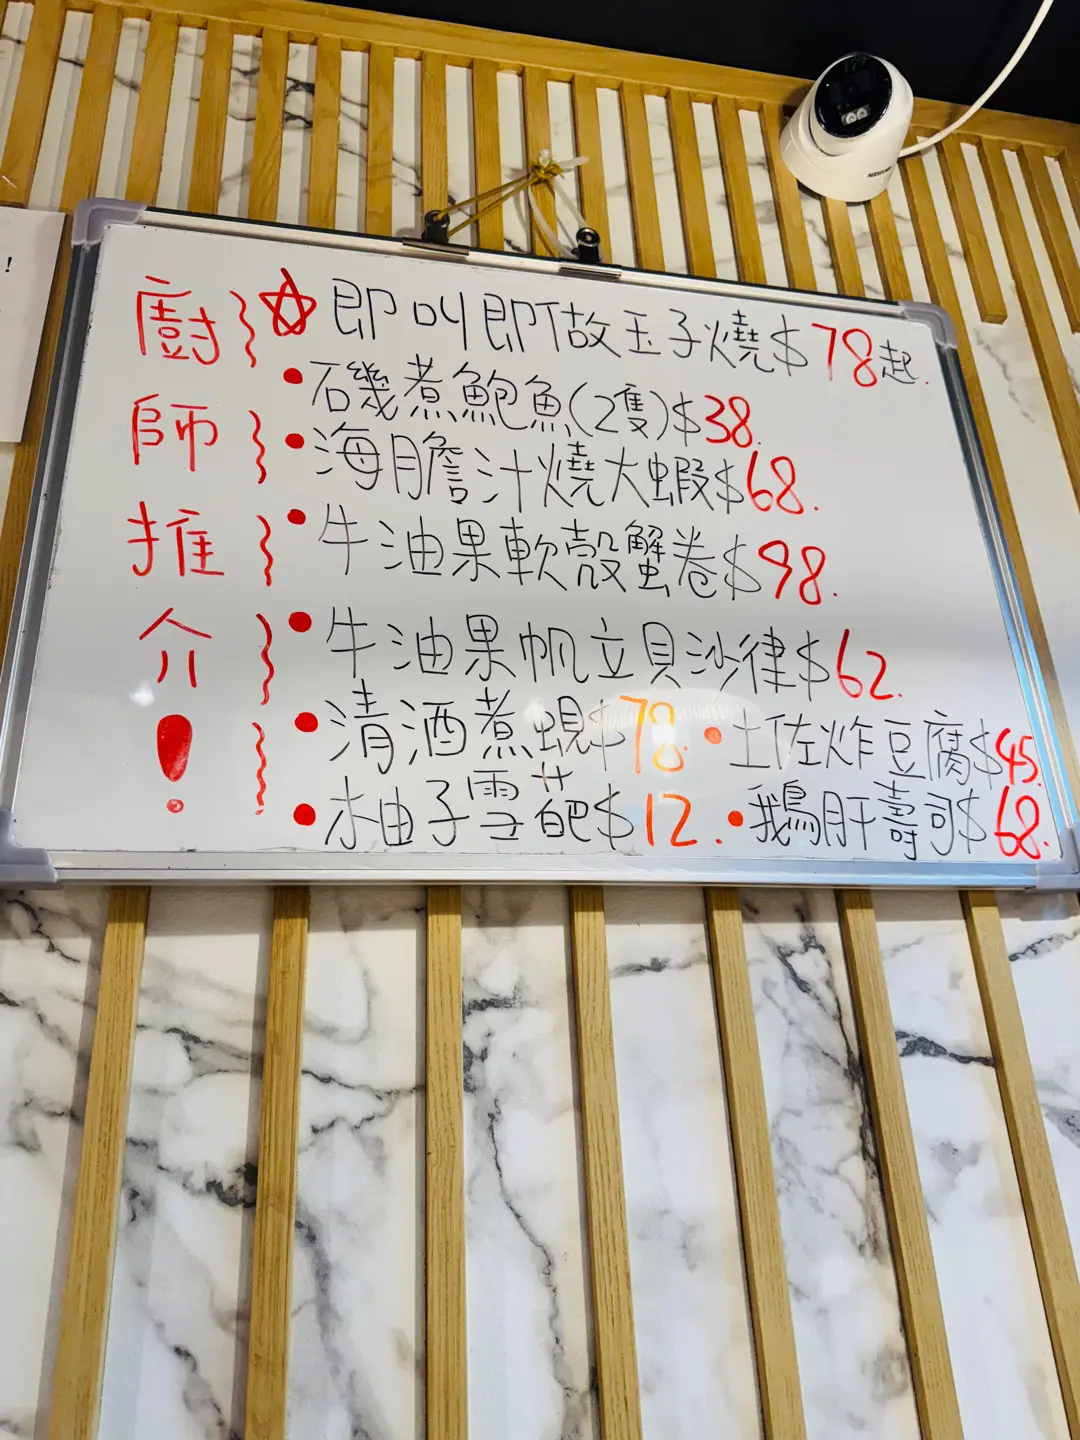 廚師推介！
☆即叫即做玉子燒$78起.
•石磯煮鮑魚(2隻)$38.
•海膽汁燒大蝦$68.
•牛油果軟殼蟹卷$98.
•牛油果帆立貝沙律$62.
•清酒煮蜆$78. •土佐炸豆腐$45.
•柚子雪葩$12. •鵝肝壽司$68.
!